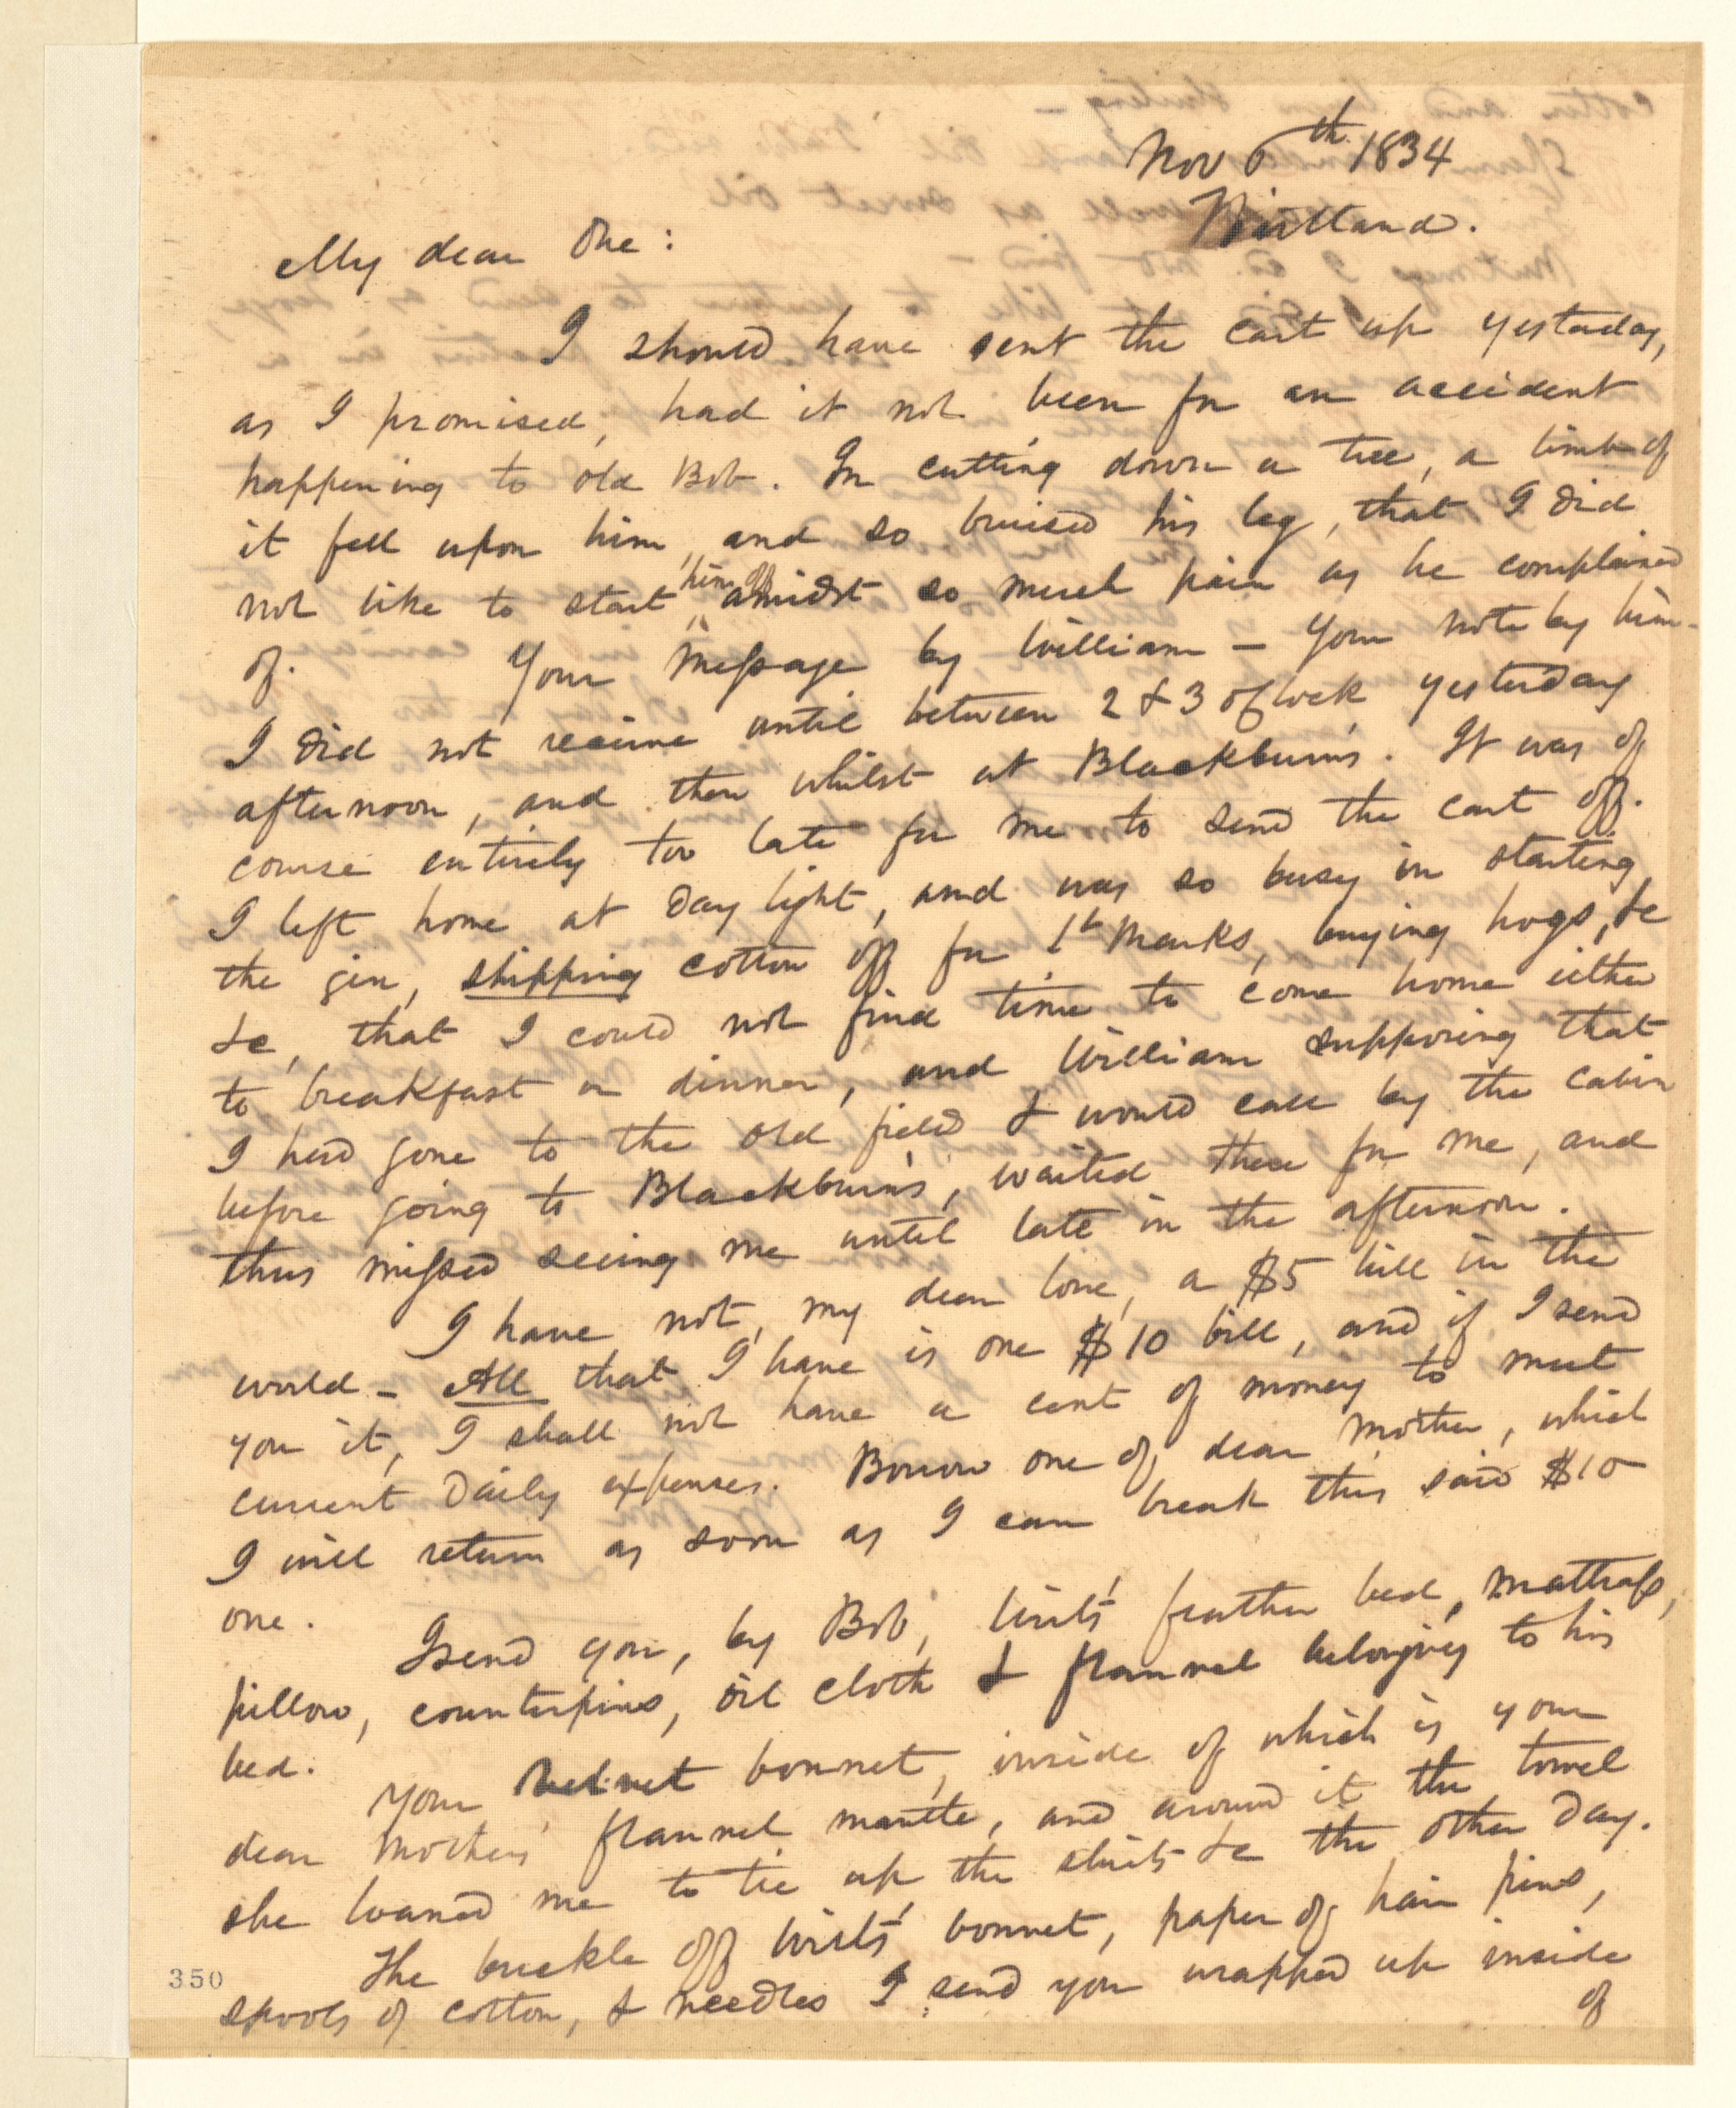 Nov 6th 1834
Wirtland.
My dear One:
I should have sent the cart up yesterday,
as I promised, had it not been for an accident
happening to old Bob. In cutting down a tree, a limb of
it fell upon him, and so bruised his leg, that I did
not like to start him off amidst so much pain as he complained
of. Your message by William – Your note by him–
I did not receive until between 2 & 3 oclock yesterday
afternoon, and then whilst at Blackburn's. It was of
course entirely too late for me to send the cart off.
I left home at day light, and was so busy in starting
the gin, shipping cotton off for St Marks, buying hogs, &c
&c, that I could not find time to come home either
to breakfast or dinner, and William supposing that
I had gone to the old field & would call by the cabin
before going to Blackburn's, waited there for me, and
thus missed seeing me until late in the afternoon.
I have not, my dear love, a $5 bill in the
world – All that I have is one $10 bill, and if I send
you it, I shall not have a cent of money to meet
current daily expenses. Borrow one of dear Mother, which
I will return as soon as I can break this said $10
one.
I send you, by Bob, Wirt's feather bed, mattrass,
pillow, counterpins, oil cloth & flannel belonging to his
bed.
Your velvet bonnet, inside of which is your
dear Mother's flannel mantle, and around it the towel
she loaned me to tie up the shirts &c the other day.
The buckle off Wirt's bonnet, paper of hair pins,
spools of cotton, & needles I send you wrapped up inside
of
350